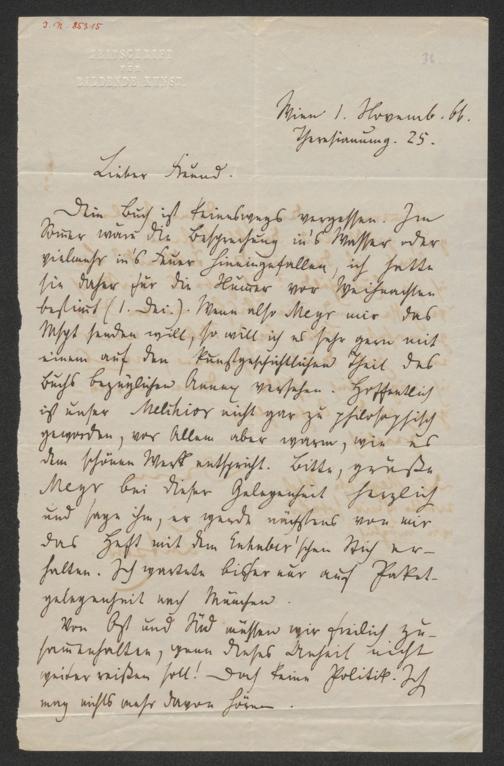 J. N. 85315
36
ZEITSCHRIFT
FÜR
BILDENDE KUNST.
Wien 1. Novemb. 66.
Theresianumg. 25.
Lieber Freund.
Dein Buch ist keineswegs vergessen. Im
Sommer wäre die Besprechung in's Wasser oder
vielmehr in's Feuer hineingefallen, ich hatte
sie daher für die Numer vor Weihnachten
bestimt (1. Dec.). Wenn also Meyr mir das
Mspt senden will, so will ich es sehr gern mit
einem auf den kunstgeschichtlichen Theil des
Buchs bezüglichen Annex versehen. Hoffentlich
ist unser Melchior nicht gar zu philosophisch
geworden, vor Allem aber warm, wie es
dem schönen Werk entspricht. Bitte, grüße
Meyr bei dieser Gelegenheit herzlich
und sage ihm, er werde nächstens von mir
das Heft mit dem Stich er-
halten. Ich wartete bisher nur auf Paket-
gelegenheit nach München.
Von Ost und Süd müssen wir freilich zu-
samenhalten, wenn dieses nicht
weiter reißen soll! Doch keine Politik. Ich
mag nichts mehr davon hören.